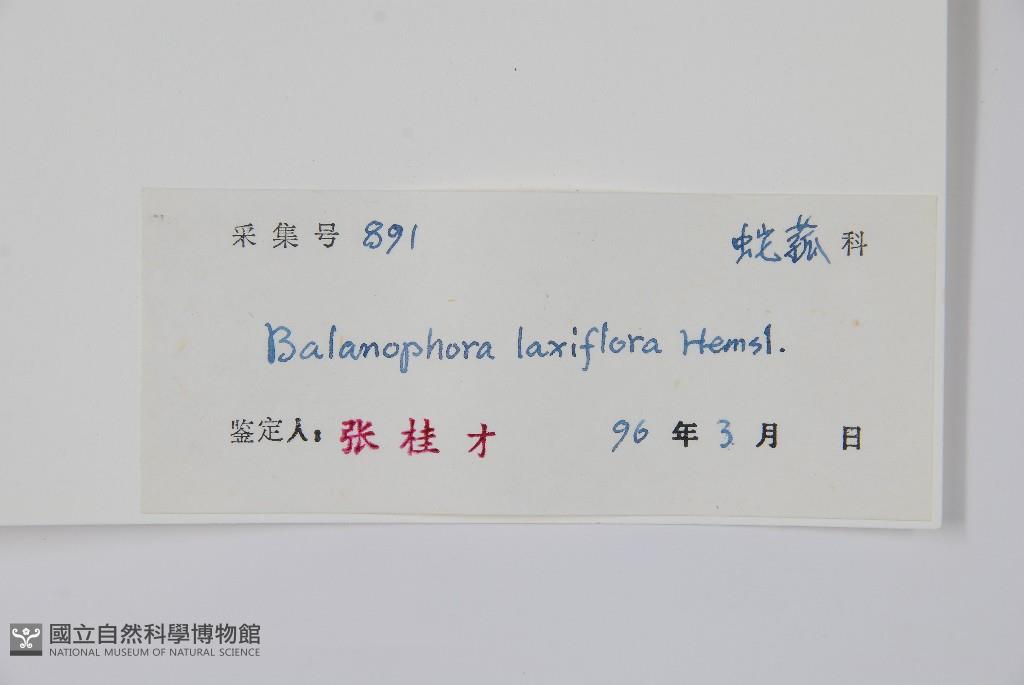 采集号 891 蛇菰科
Balanophora laxiflora Hemsl.
鉴定人: 张桂才 96年3月 日
國立自然科學博物館
NATIONAL MUSEUM OF NATURAL SCIENCE